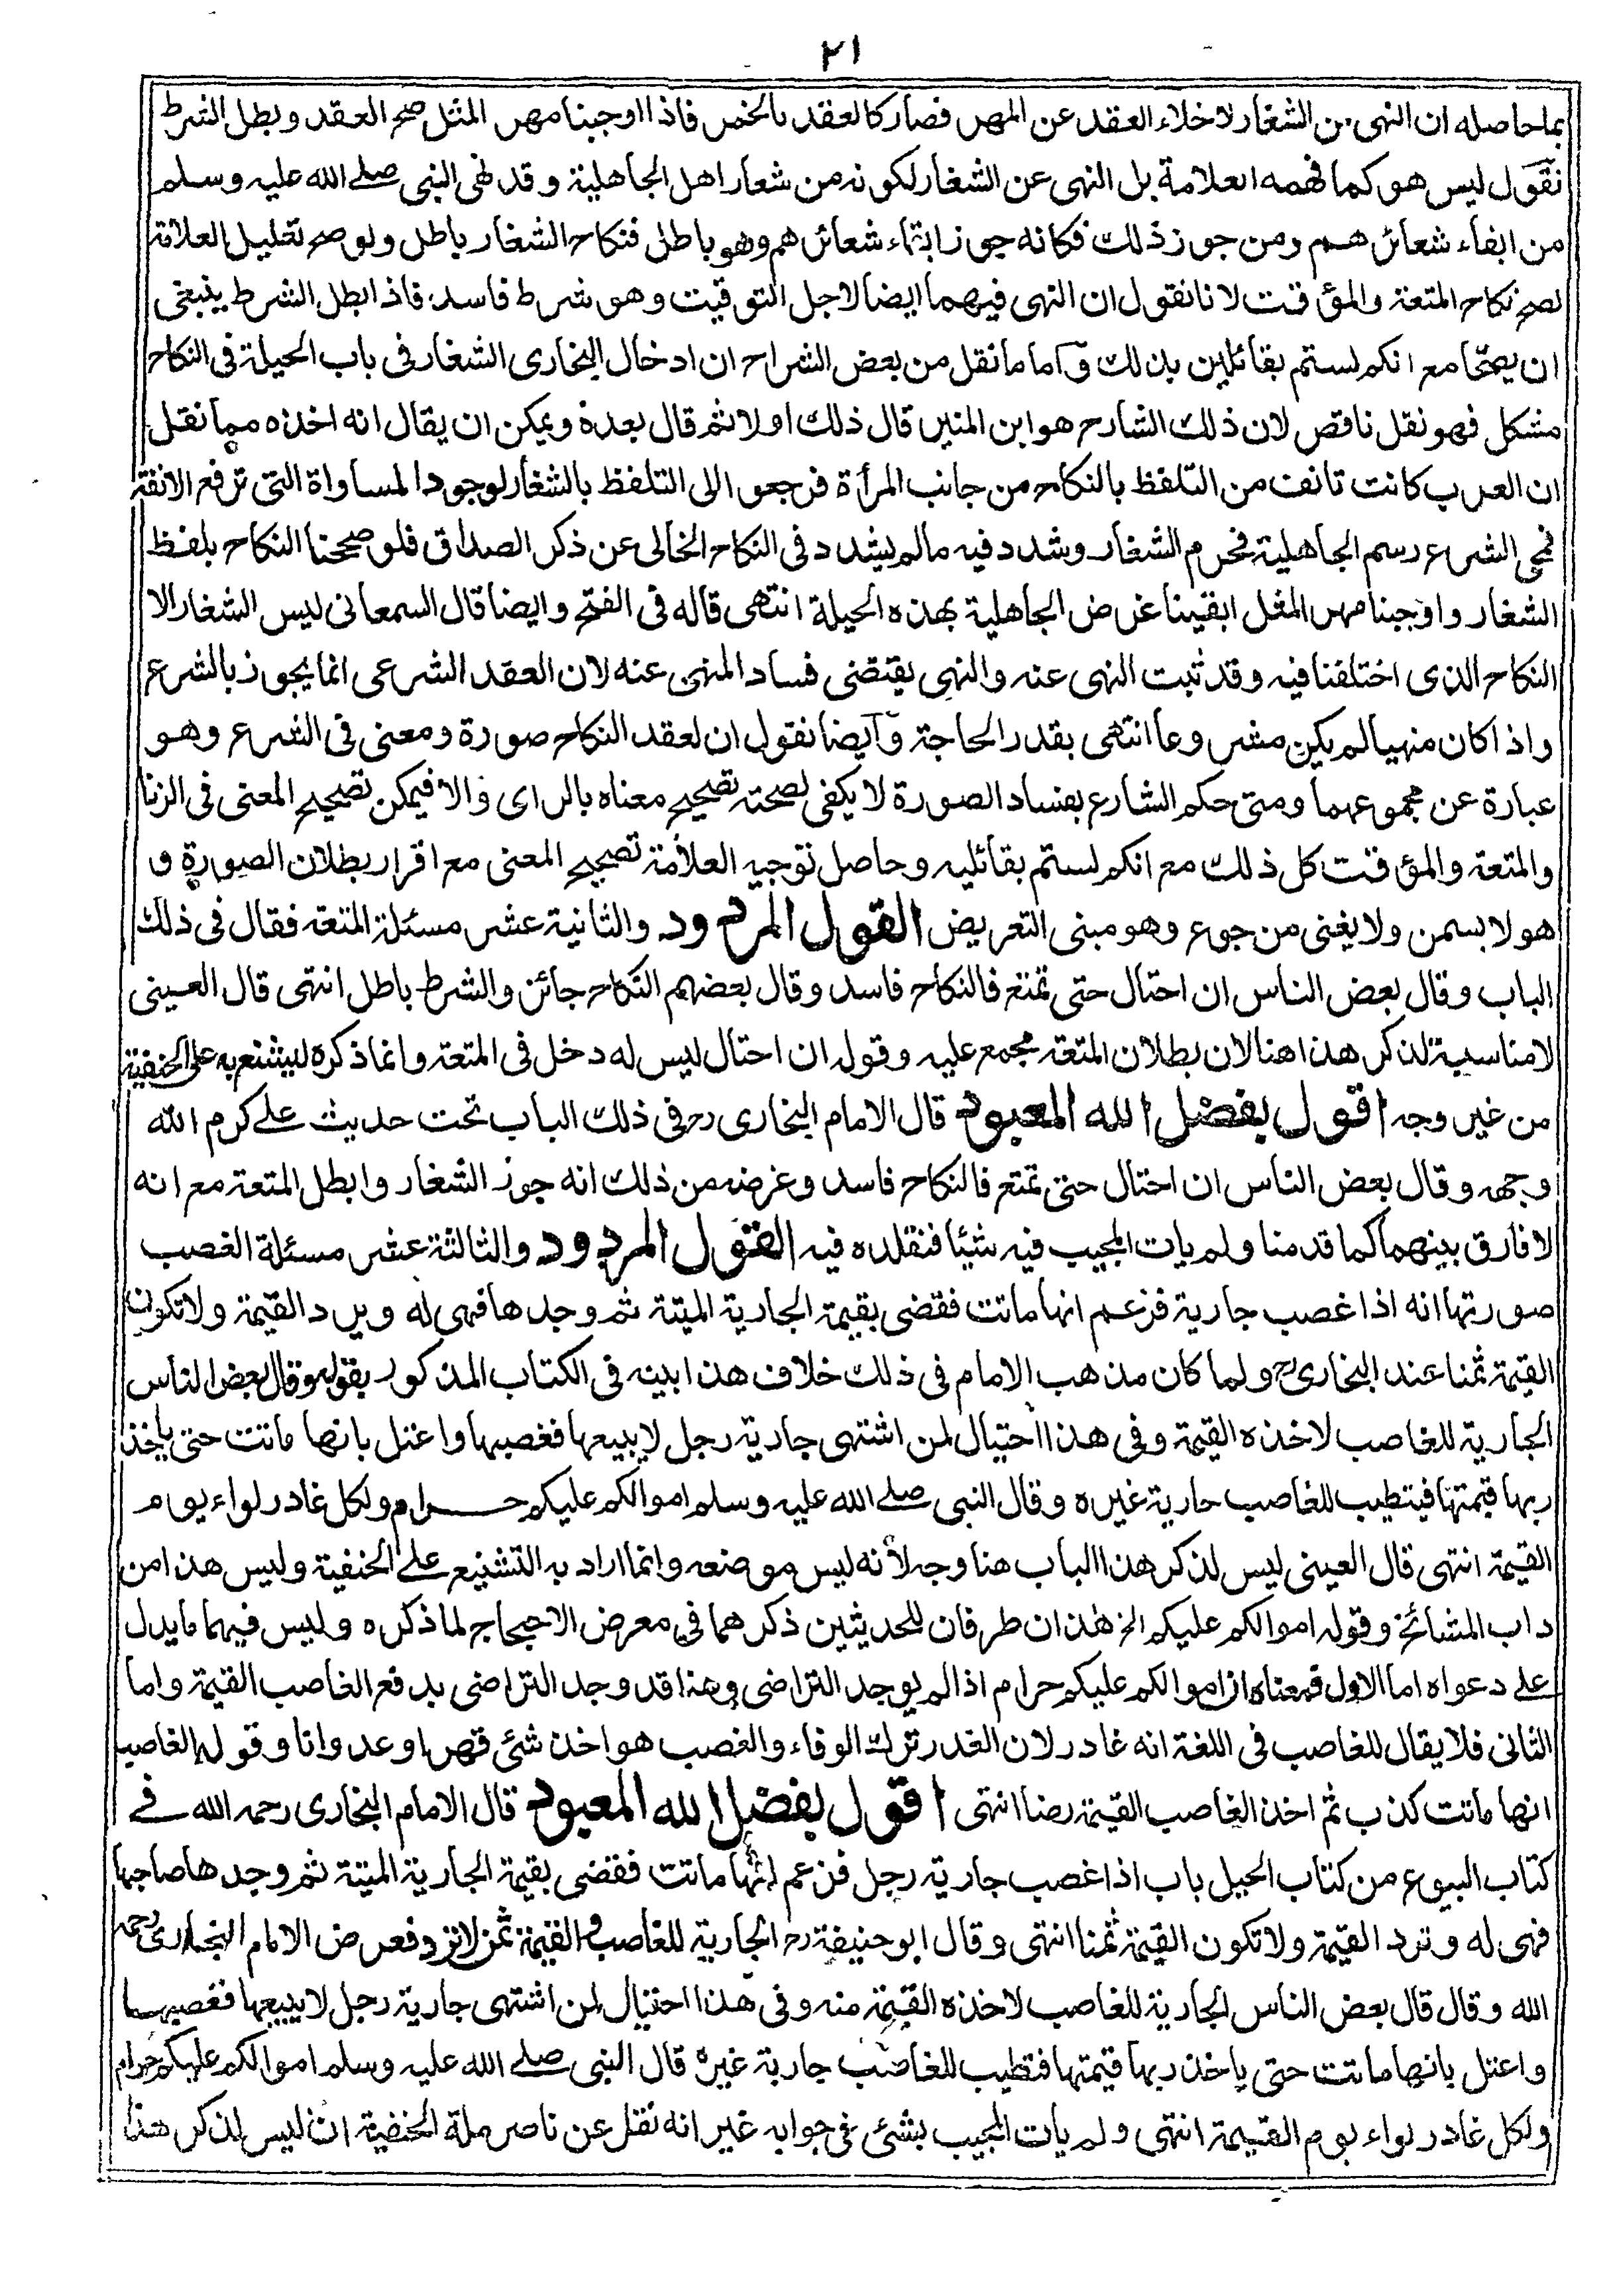 ٢١
بما حاصله ان النهى عن الشغار لاخلاء العقد عن المهر فصار كالعقد بالخمر فاذا اوجبنا مهر المثل صح العقد وبطل الشرط
نقول ليس هو كما فهمه العلامة بل النهى عن الشغار لكونه من شعار اهل الجاهلية وقد نهى النبى صلے الله عليه وسلم
من ابقاء شعائر هم ومن جوز ذلك فكانه جوز ابقاء شعائر هم وهو باطل فنكاح الشغار باطل ولو صح تعليل العلامة
لصح نكاح المتعة والمؤقت لانا نقول ان النهى فيهما ايضا لاجل التوقيت وهو شرط فاسد فاذا بطل الشرط ينبغى
ان يصحا مع انكم لستم بقائلين بذلك وآما ما نقل من بعض الشراح ان ادخال البخارى الشغار فى باب الحيلة فى النكاح
مشكل فهو نقل ناقص لان ذلك الشارح هو ابن المنير قال ذلك اولا ثم قال بعدة ويمكن ان يقال انه اخذه مما نقل
ان العرب كانت تانف من التلفظ بالنكاح من جانب المرأة فرجعوا الى التلفظ بالشغار لوجود المساواة التى ترفع الانفة
فمحى الشرع رسم الجاهلية فحرم الشغار وشدد فيه ما لم يشدد فى النكاح الخالى عن ذكر الصداق فلو صححنا النكاح بلفظ
الشغار واوجبنا مهر المثل ابقينا غرض الجاهلية بهذه الحيلة انتهى قاله فى الفتح وايضا قال السمعانى ليس الشغار الا
النكاح الذى اختلفنا فيه وقد ثبت النهى عنه والنهى يقتضى فساد المنهى عنه لان العقد الشرعى انما يجوز بالشرع
واذا كان منهيا لم يكن مشروعا انتهى بقدر الحاجة وآيضا نقول ان لعقد النكاح صورة ومعنى فى الشرع وهو
عبارة عن مجموعهما ومتى حكم الشارع بفساد الصورة لا يكفى لصحته تصحيح معناه بالراى والا فيمكن تصحيح المعنى فى الزنا
والمتعة والمؤقت كل ذلك مع انكم لستم بقائليه وحاصل توجيه العلامة تصحيح المعنى مع اقرار بطلان الصورة و
هو لا يسمن ولا يغنى من جوع وهو مبنى التعريض القول المردود والثانية عشر مسئلة المتعة فقال فى ذلك
الباب وقال بعض الناس ان احتال حتى تمتع فالنكاح فاسد وقال بعضهم النكاح جائز والشرط باطل انتهى قال العينى
لا مناسبة لذكر هذا هنا لان بطلان المتعة مجمع عليه وقوله ان احتال ليس له دخل فى المتعة وانما ذكره ليشنع به على الحنفية
من غير وجه اقول بفضل الله المعبود قال الامام البخارى رح فى ذلك الباب تحت حديث علے كرم الله
وجهه وقال بعض الناس ان احتال حتى تمتع فالنكاح فاسد وغرضه من ذلك انه جوز الشغار وابطل المتعة مع انه
لا فارق بينهما كما قدمنا ولم يات المجيب فيه شيئا فنقلده فيه القول المردود والثالثة عشر مسئلة الغصب
صورتها انه اذا غصب جارية فزعم انها ماتت فقضى بقيمة الجارية الميتة ثم وجدها فهى له ويرد القيمة ولا تكون
القيمة ثمنا عند البخارى رح ولما كان مذهب الامام فى ذلك خلاف هذا بينه فى الكتاب المذكور بقوله وقال بعض الناس
الجارية للغاصب لاخذه القيمة وفى هذا احتيال لمن اشتهى جارية رجل لا يبيعها فغصبها واعتل بانها ماتت حتى ياخذ
ربها قيمتها فيتطيب للغاصب جارية غيره وقال النبى صلے الله عليه وسلم اموالكم عليكم حرام ولكل غادر لواء يوم
القيمة انتهى قال العينى ليس لذكر هذا الباب هنا وجه لأنه ليس موضعه وانما اراد به التشنيع علے الحنفية وليس هذا من
داب المشائخ وقوله اموالكم عليكم الخ هذان طرفان للحديثين ذكرهما فى معرض الاحتجاج لما ذكره وليس فيهما ما يدل
علے دعواه اما الاول فمعناه ان اموالكم عليكم حرام اذا لم يوجد التراضى وهنا قد وجد التراضى بدفع الغاصب القيمة واما
الثانى فلا يقال للغاصب فى اللغة انه غادر لان الغدر ترك الوفاء والغصب هو اخذ شئى قهرا وعدوانا وقوله الغاصب
انها ماتت كذب ثم اخذ الغاصب القيمة رضا انتهى اقول بفضل الله المعبود قال الامام البخارى رحمه الله فے
كتاب البيوع من كتاب الحيل باب اذا غصب جارية رجل فزعم انها ماتت فقضى بقيمة الجارية الميتة ثم وجدها صاحبها
فهى له وترد القيمة ولا تكون القيمة ثمنا انتهى وقال ابو حنيفة رح الجارية للغاصب والقيمة ثمن لا ترد فعرض الامام البخارى رحمه
الله وقال قال بعض الناس الجارية للغاصب لاخذه القيمة منه وفى هذا احتيال لمن اشتهى جارية رجل لا يبيعها فغصبها
واعتل بانها ماتت حتى ياخذ ربها قيمتها فتطيب للغاصب جارية غيره قال النبى صلے الله عليه وسلم اموالكم عليكم حرام
ولكل غادر لواء يوم القيمة انتهى ولم يات المجيب بشئى فى جوابه غير انه نقل عن ناصر ملة الحنفية ان ليس لذكر هذا